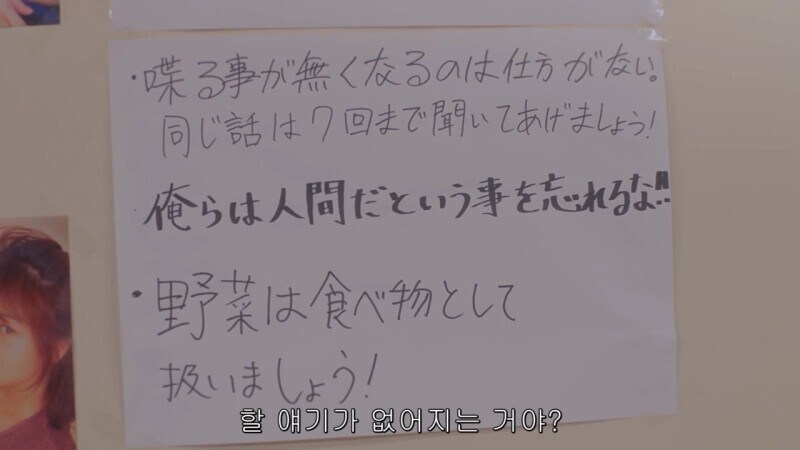 ・喋る事が無くなるのは仕方がない。
同じ話は7回まで聞いてあげましょう!
俺らは人間だという事を忘れるな!!
・野菜は食べ物として
扱いましょう!
할 얘기가 없어지는 거야?